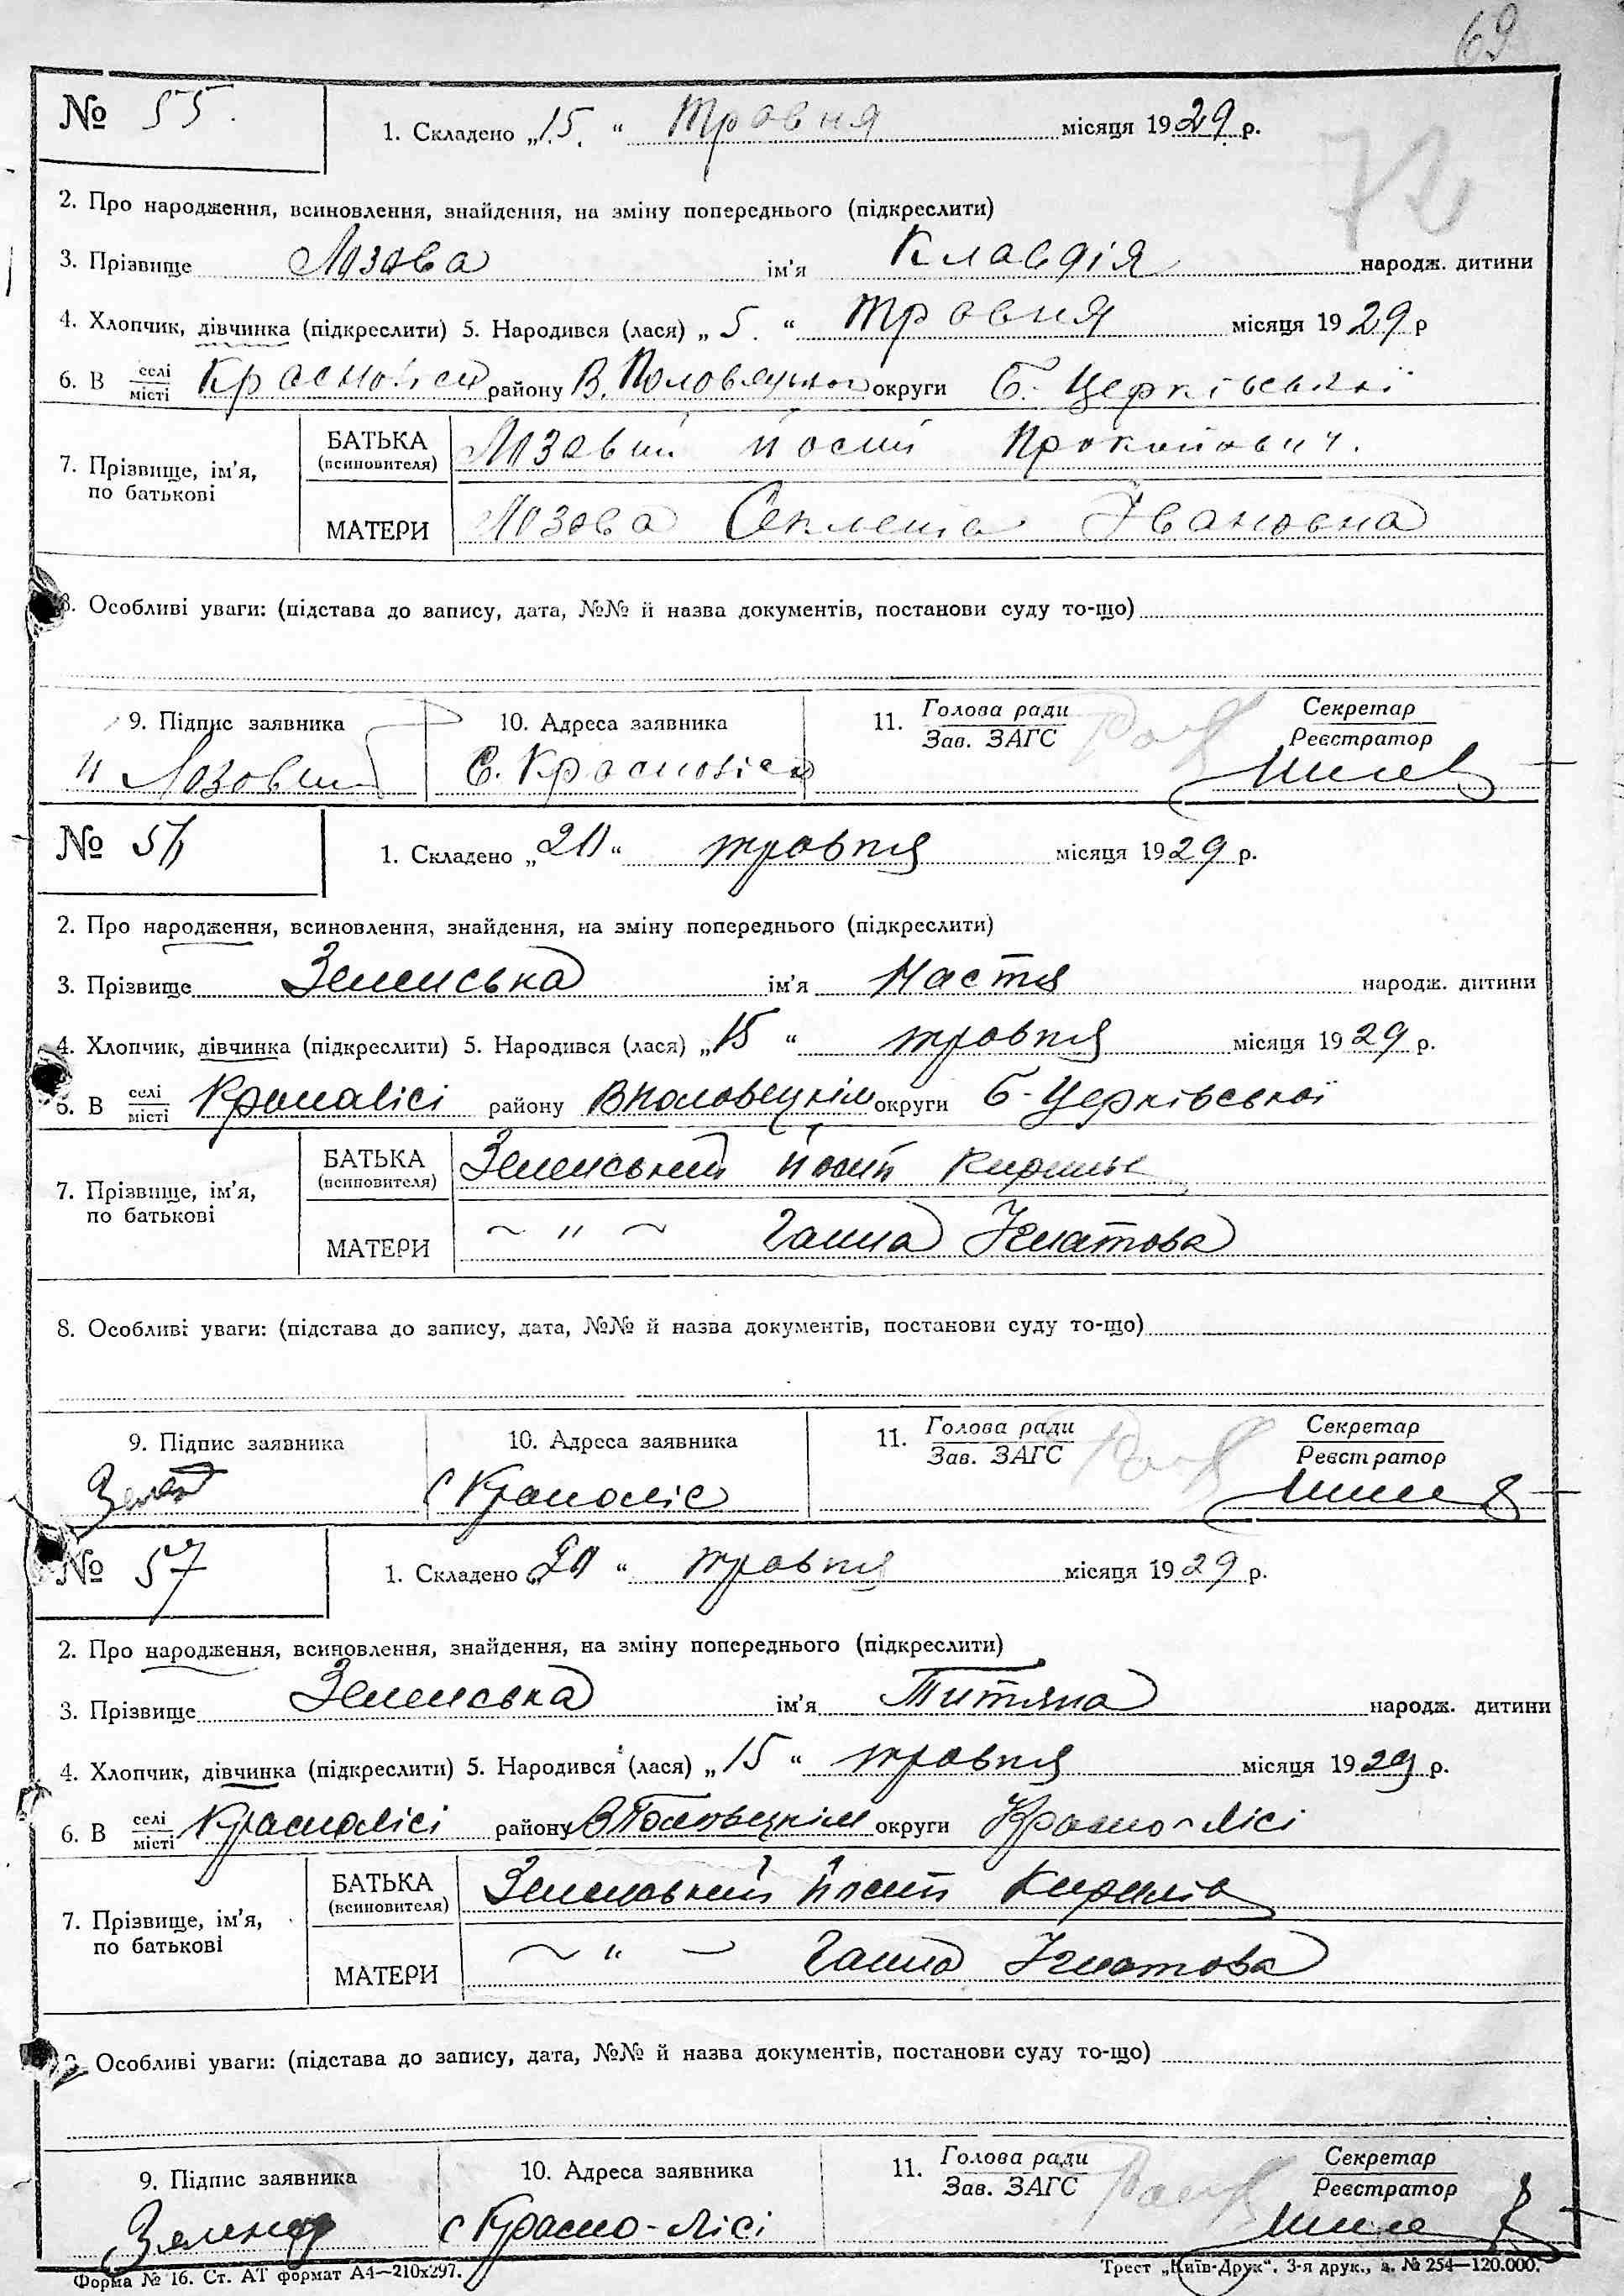 69
72
№ 55.
1. Складено „15.“ Травня місяця 1929 р.
2. Про народження, всиновлення, знайдення, на зміну попереднього (підкреслити)
3. Прізвище Лозова ім'я Клавдія народж. дитини
4. Хлопчик, дівчинка (підкреслити) 5. Народився (лася) „5.“ Травня місяця 1929 р
6. В селі/місті району В. Половецького округи Б. Церківської
7. Прізвище, ім'я, по батькові
БАТЬКА (всиновителя) Лозовий Йосип Прокопович.
МАТЕРИ Лозова Івановна
8. Особливі уваги: (підстава до запису, дата, №№ й назва документів, постанови суду то-що)
9. Підпис заявника 10. Адреса заявника 11. Голова ради/Зав. ЗАГС Секретар/Реєстратор
Лозовий С.
№ 56
1. Складено „20“ травня місяця 1929 р.
2. Про народження, всиновлення, знайдення, на зміну попереднього (підкреслити)
3. Прізвище Зеленська ім'я Настя народж. дитини
4. Хлопчик, дівчинка (підкреслити) 5. Народився (лася) „15“ травня місяця 1929 р.
6. В селі/місті Краснолісі району ВПоловецкім округи Б-Церківської
7. Прізвище, ім'я, по батькові
БАТЬКА (всиновителя) Зеленський Йосип
МАТЕРИ ~ " ~ Ганна Ігнатова
8. Особливі уваги: (підстава до запису, дата, №№ й назва документів, постанови суду то-що)
9. Підпис заявника 10. Адреса заявника 11. Голова ради/Зав. ЗАГС Секретар/Реєстратор
с Красноліс
№ 57
1. Складено „20“ травня місяця 1929 р.
2. Про народження, всиновлення, знайдення, на зміну попереднього (підкреслити)
3. Прізвище Зеленська ім'я Титяна народж. дитини
4. Хлопчик, дівчинка (підкреслити) 5. Народився (лася) „15“ травня місяця 1929 р.
6. В селі/місті Краснолісі району ВПоловецкім округи Красно-лісі
7. Прізвище, ім'я, по батькові
БАТЬКА (всиновителя) Зеленський Йосип Кирилів
МАТЕРИ ~ " ~ Ганна Ігнатова
8. Особливі уваги: (підстава до запису, дата, №№ й назва документів, постанови суду то-що)
9. Підпис заявника 10. Адреса заявника 11. Голова ради/Зав. ЗАГС Секретар/Реєстратор
с Красно-лісі
Форма № 16. Ст. АТ формат А4—210х297. Трест „Київ-Друк“. 3-я друк., з. № 254—120.000.